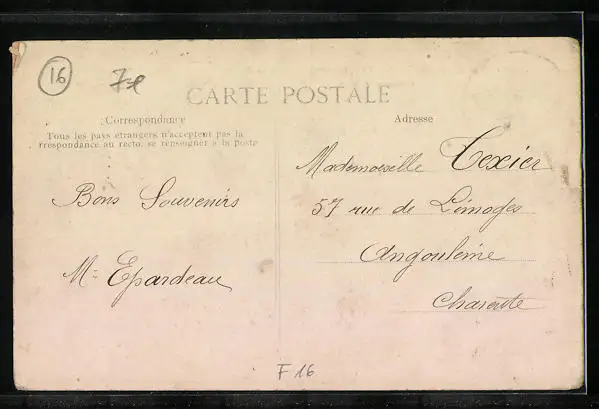 16
7-e
CARTE POSTALE
Correspondance
Tous les pays étrangers n'acceptent pas la
rrespondance au recto, se renseigner à la poste
Adresse
Bons Souvenirs
M. Epardeau
Mademoiselle Texier
57 rue de Limoges
Angoulême
Charente
F 16